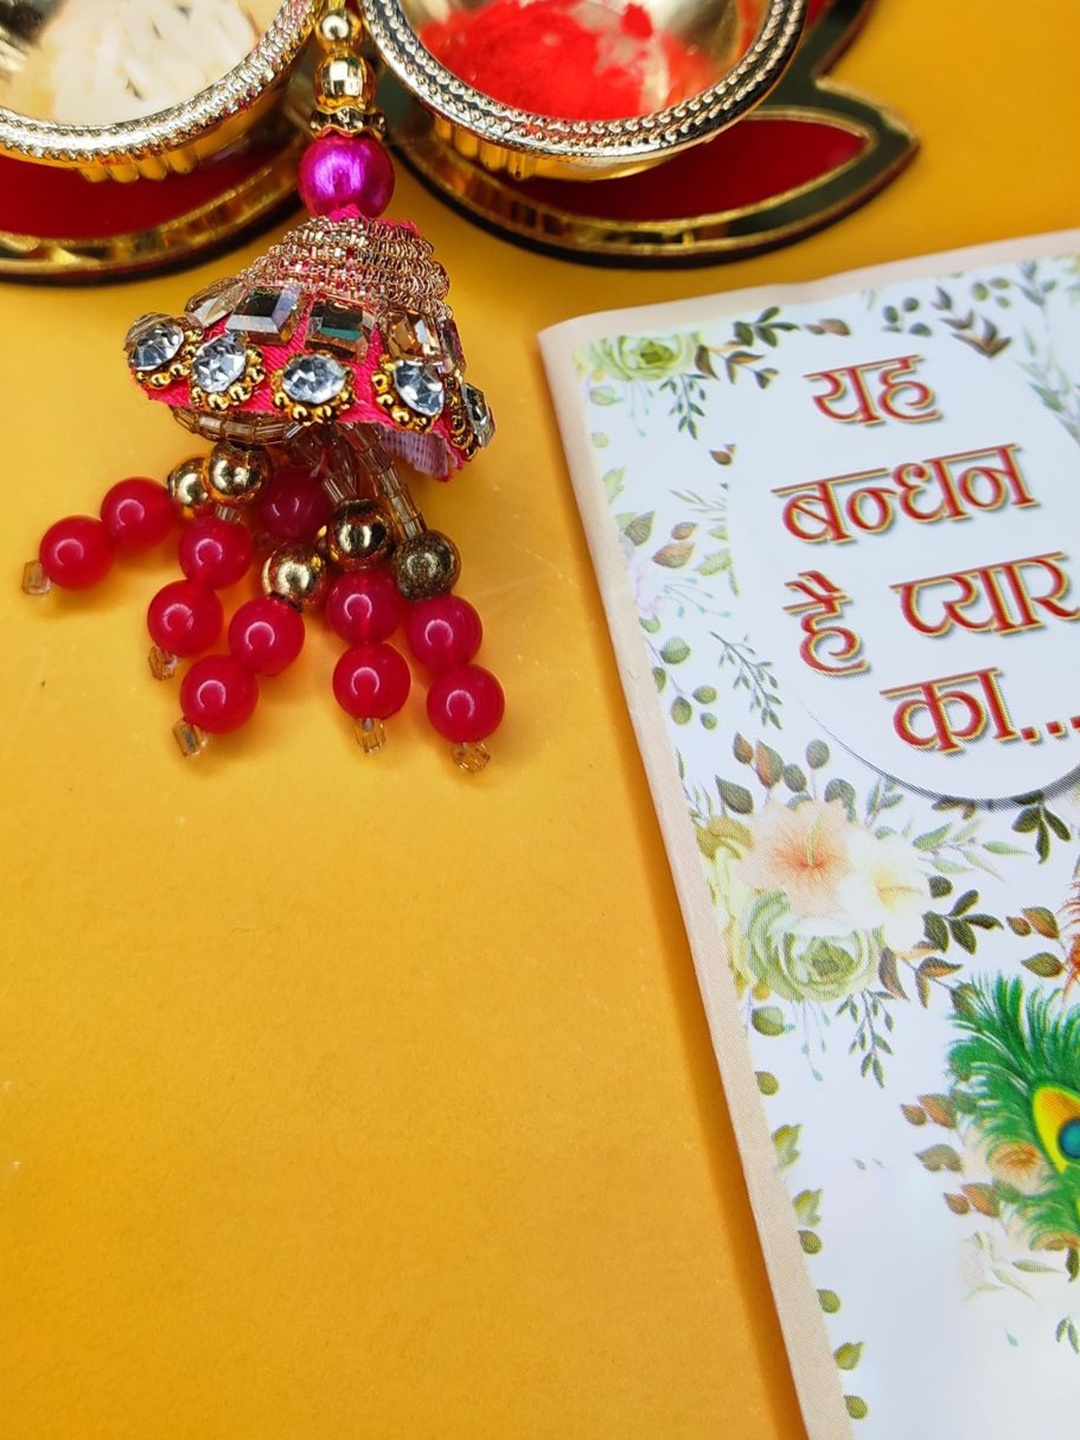 यह
बन्धन
है प्यार
का...